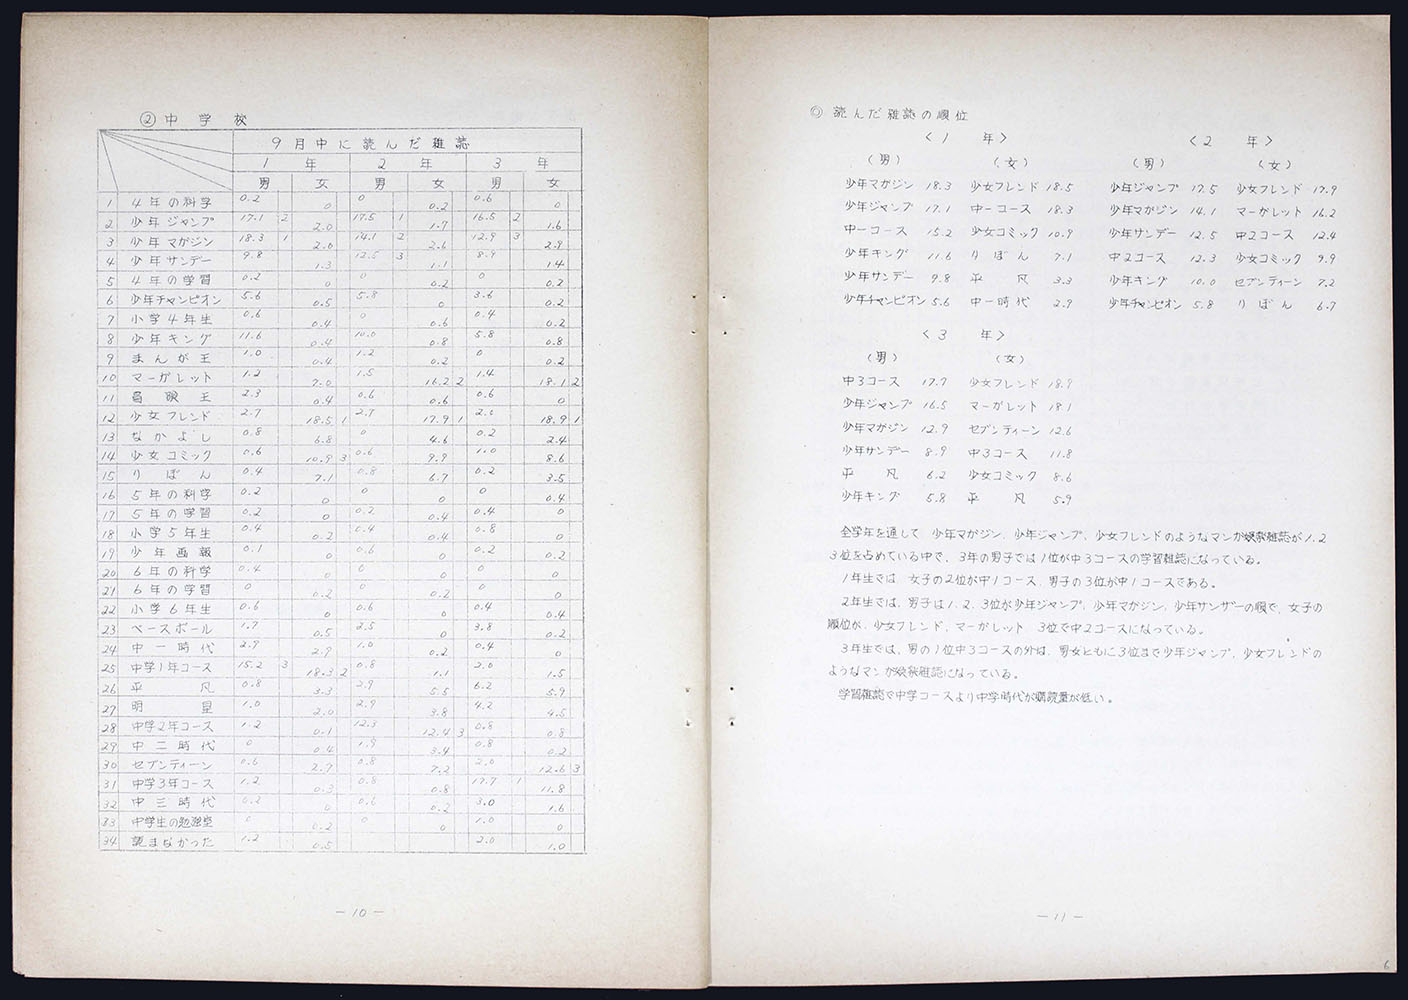 ②中学校
9月中に読んだ雑誌
1年 2年 3年
男 女 男 女 男 女
1 4年の科学 0.2 0 0 0.2 0.6 0
2 少年ジャンプ 17.1 2 2.0 17.5 1 1.7 16.5 2 1.6
3 少年マガジン 18.3 1 2.0 14.1 2 2.6 12.9 3 2.9
4 少年サンデー 9.8 1.3 12.5 3 1.1 8.9 1.4
5 4年の学習 0.2 0 0 0.2 0 0.2
6 少年チャンピオン 5.6 0.5 5.8 0 3.6 0.2
7 小学4年生 0.6 0.4 0 0.6 0.4 0.2
8 少年キング 11.6 0.4 10.0 0.8 5.8 0.8
9 まんが王 1.0 0.4 1.2 0.2 0 0.2
10 マーガレット 1.2 7.0 1.5 16.2 2 1.4 18.1 2
11 冒険王 2.3 0.4 0.6 0.6 0.6 0
12 少女フレンド 2.7 18.5 1 2.7 17.9 1 2.0 18.9 1
13 なかよし 0.8 6.8 0 4.6 0.2 2.4
14 少女コミック 0.6 10.9 3 0.6 9.9 1.0 8.6
15 りぼん 0.4 7.1 0.8 6.7 0.2 3.5
16 5年の科学 0.2 0 0 0 0 0.4
17 5年の学習 0.2 0 0.2 0.4 0.4 0
18 小学5年生 0.4 0.2 0.4 0.4 0.8 0
19 少年画報 0.1 0 0.6 0 0.2 0.2
20 6年の科学 0.4 0 0 0 0 0
21 6年の学習 0 0.2 0 0.2 0 0
22 小学6年生 0.6 0 0.6 0 0.4 0.4
23 ベースボール 1.7 0.5 2.5 0 3.8 0.2
24 中一時代 2.9 2.9 1.0 0.2 0.4 0
25 中学1年コース 15.2 3 18.3 2 0.8 1.1 2.0 1.5
26 平凡 0.8 3.3 2.9 5.5 6.2 5.9
27 明星 1.0 2.0 2.9 3.8 4.2 4.5
28 中学2年コース 1.2 0.1 12.3 12.4 3 0.8 0.8
29 中二時代 0 0.4 1.9 3.4 0.8 0.2
30 セブンティーン 0.6 2.7 0.8 7.2 2.0 12.6 3
31 中学3年コース 1.2 0.3 0.8 0.8 17.7 1 11.8
32 中三時代 0.2 0 0.6 0.2 3.0 1.6
33 中学生の勉強室 0 0.2 0 0 1.0 0
34 読まなかった 1.2 0.5 2.0 1.0
－10－
◎ 読んだ雑誌の順位
〈1年〉 〈2年〉
(男) (女) (男) (女)
少年マガジン 18.3 少女フレンド 18.5 少年ジャンプ 17.5 少女フレンド 17.9
少年ジャンプ 17.1 中一コース 18.3 少年マガジン 14.1 マーガレット 16.2
中一コース 15.2 少女コミック 10.9 少年サンデー 12.5 中2コース 12.4
少年キング 11.6 りぼん 7.1 中2コース 12.3 少女コミック 9.9
少年サンデー 9.8 平凡 3.3 少年キング 10.0 セブンティーン 7.2
少年チャンピオン 5.6 中一時代 2.9 少年チャンピオン 5.8 りぼん 6.7
〈3年〉
(男) (女)
中3コース 17.7 少女フレンド 18.9
少年ジャンプ 16.5 マーガレット 18.1
少年マガジン 12.9 セブンティーン 12.6
少年サンデー 8.9 中3コース 11.8
平凡 6.2 少女コミック 8.6
少年キング 5.8 平凡 5.9
全学年を通して、少年マガジン、少年ジャンプ、少女フレンドのようなマンガ娯楽雑誌が1.2
3位を占めている中で、3年の男子では1位が中3コースの学習雑誌になっている。
1年生では、女子の2位が中1コース、男子の3位が中1コースである。
2年生では、男子は1.2.3位が少年ジャンプ、少年マガジン、少年サンザーの順で、女子の
順位が、少女フレンド、マーガレット 3位で中2コースになっている。
3年生では、男の1位中3コースの外は、男女ともに3位まで少年ジャンプ、少女フレンドの
ようなマンガ娯楽雑誌になっている。
学習雑誌で中学コースより中学時代が購読量が低い。
－11－
6